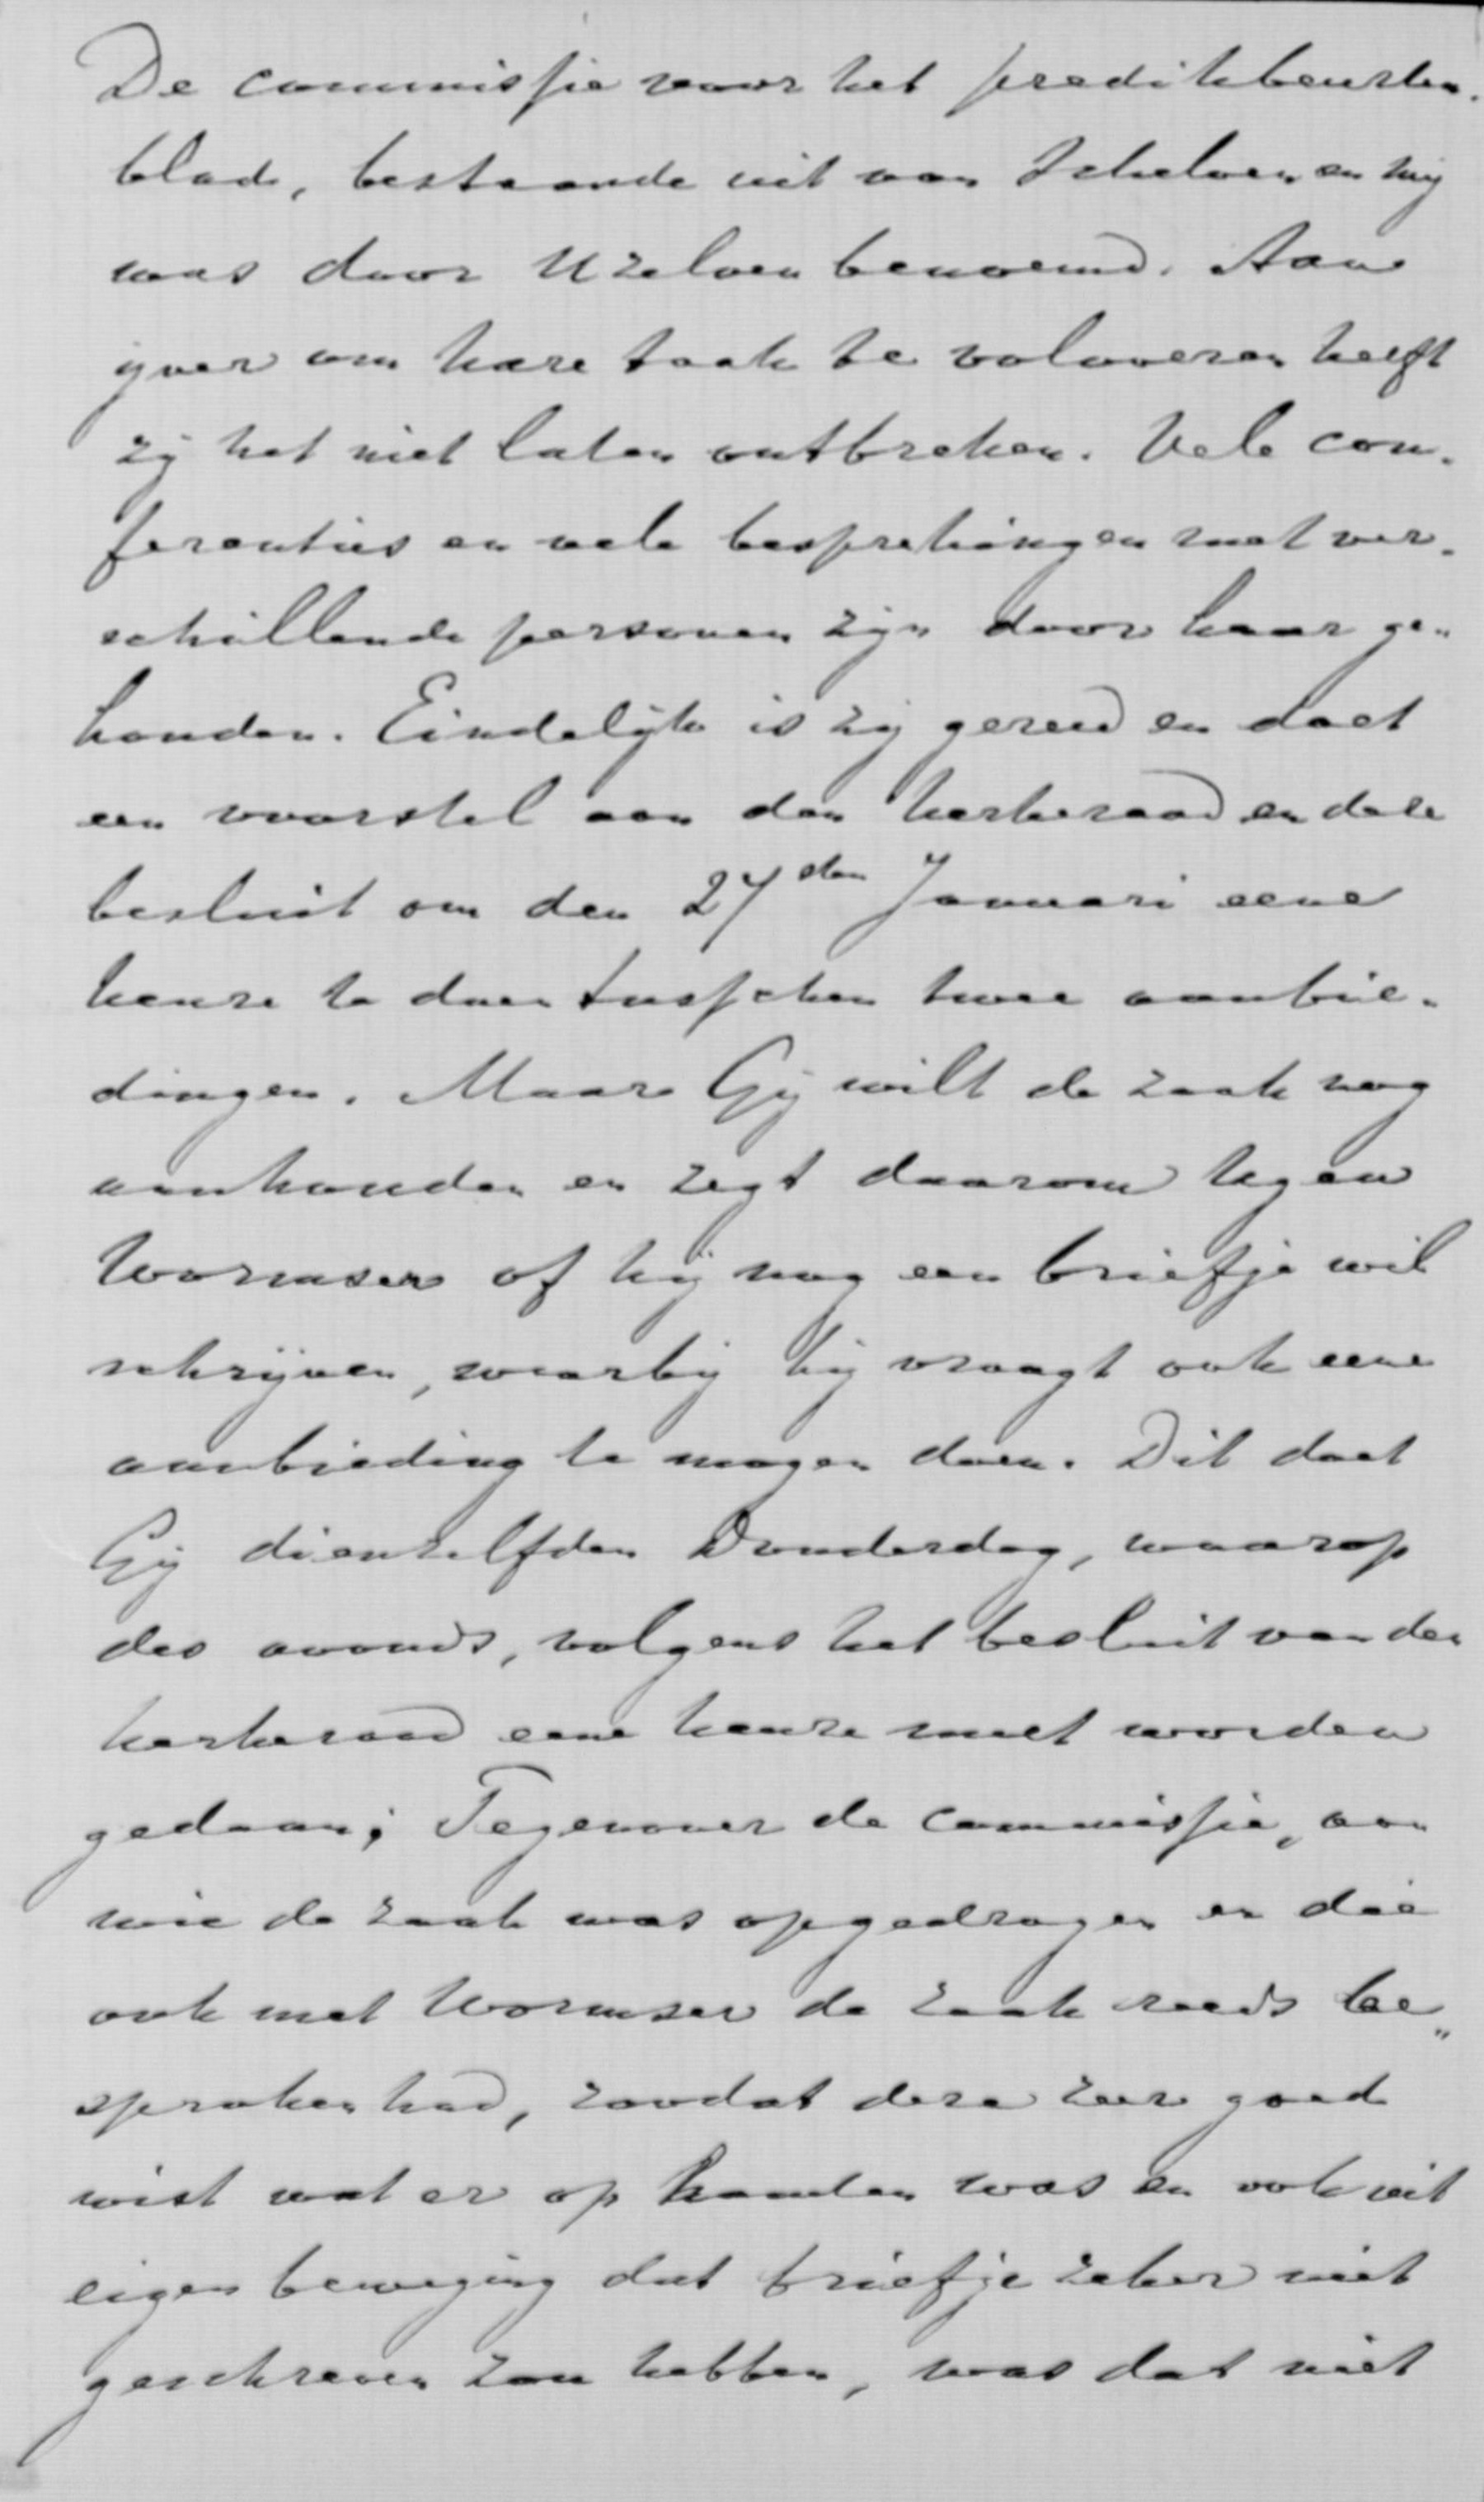 De commissie voor het predikbeurten-
blad, bestaande uit van Schelven en mij
was door Uzelven benoemd. Aan
ijver om hare taak te volvoeren heeft
zij het niet laten ontbreken. Vele con-
ferenties en vele besprekingen met ver-
schillende personen zijn door haar ge-
houden. Eindelijk is zij gereed en doet
een voorstel aan den kerkeraad en deze
besluit om den 27sten Januari eene
keuze te doen tusschen twee aanbie-
dingen. Maar Gij wilt de zaak nog
aanhouden en zegt daarom tegen
Wormser of hij nog een briefje wil
schrijven, waarbij hij vraagt ook eene
aanbieding te mogen doen. Dit doet
Gij dienzelfden Donderdag, waarop
des avonds, volgens het besluit van den
kerkeraad eene keuze moet worden
gedaan; Tegenover de commissie, aan
wie de zaak was opgedragen en die
ook met Wormser de zaak reeds be„
sproken had, zoodat deze zeer goed
wist wat er op handen was en ook uit
eigen beweging dat briefje zeker niet
geschreven zou hebben, was dat niet